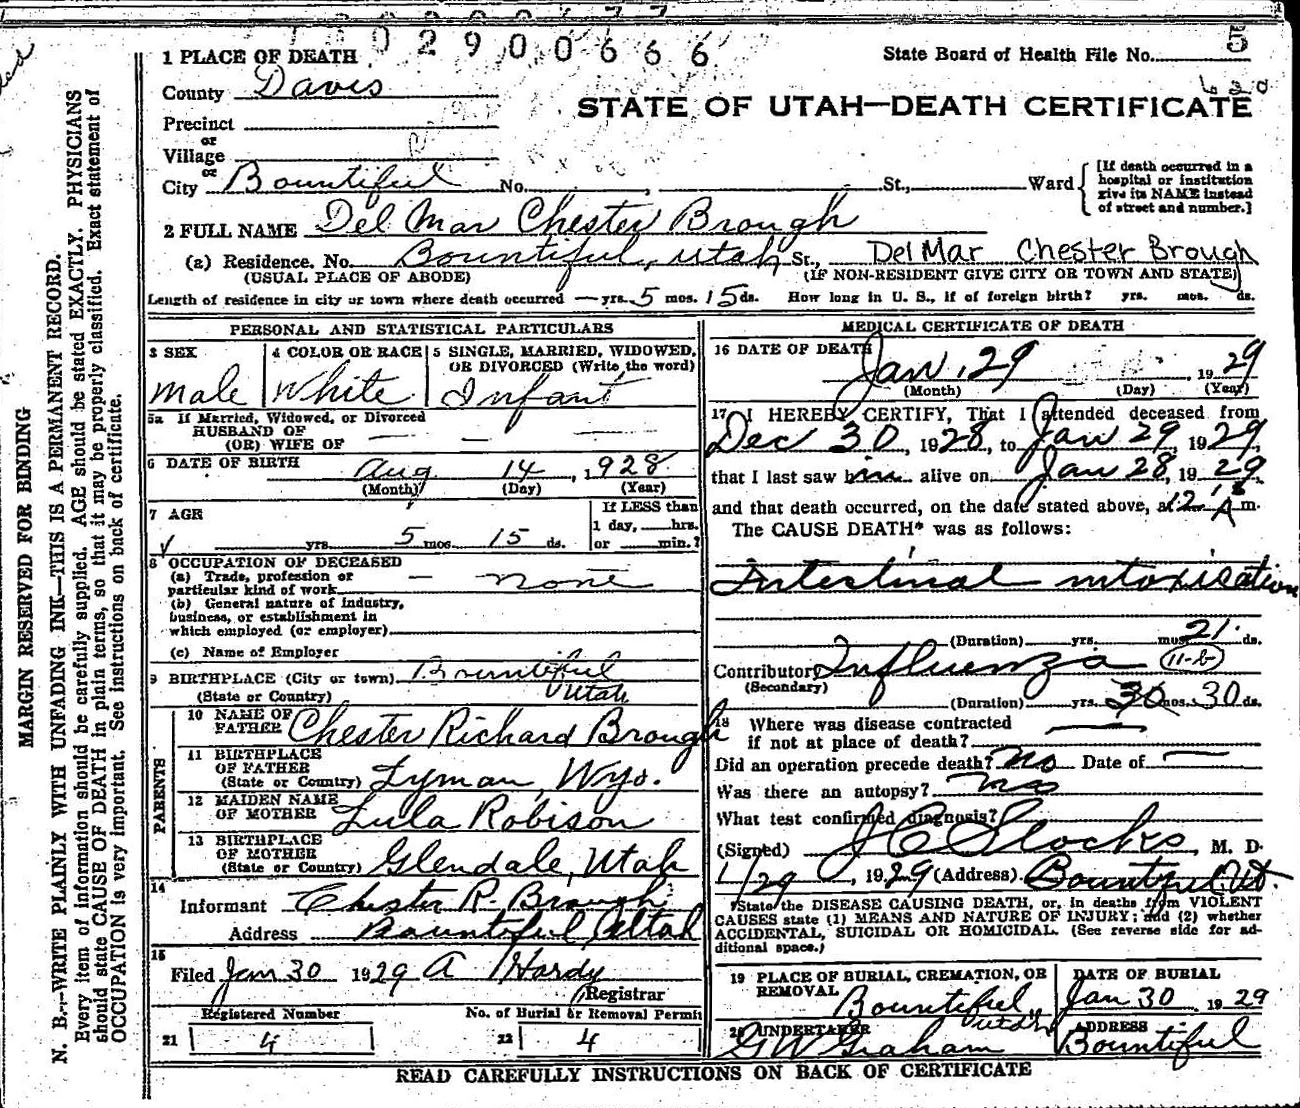 02900666
5
1 PLACE OF DEATH
State Board of Health File No.
County Davis
STATE OF UTAH—DEATH CERTIFICATE
Precinct
or
Village
or
City Bountiful No. , St., Ward
[If death occurred in a hospital or institution give its NAME instead of street and number.]
2 FULL NAME Del Mar Chester Brough
(a) Residence. No. Bountiful, Utah St., Del Mar Chester Brough
(USUAL PLACE OF ABODE) (IF NON-RESIDENT GIVE CITY OR TOWN AND STATE)
Length of residence in city or town where death occurred — yrs. 5 mos. 15 ds. How long in U. S., if of foreign birth? yrs. mos. ds.
PERSONAL AND STATISTICAL PARTICULARS
3 SEX
Male
4 COLOR OR RACE
White
5 SINGLE, MARRIED, WIDOWED, OR DIVORCED (Write the word)
Infant
5a If Married, Widowed, or Divorced
HUSBAND OF
(OR) WIFE OF — — —
6 DATE OF BIRTH Aug 14, 1928
(Month) (Day) (Year)
7 AGE
yrs. 5 mos. 15 ds.
If LESS than
1 day, hrs.
or min.?
8 OCCUPATION OF DECEASED
(a) Trade, profession or
particular kind of work — none
(b) General nature of industry,
business, or establishment in
which employed (or employer)
(c) Name of Employer
9 BIRTHPLACE (City or town) Bountiful
(State or Country) Utah
PARENTS
10 NAME OF FATHER Chester Richard Brough
11 BIRTHPLACE OF FATHER
(State or Country) Lyman, Wyo.
12 MAIDEN NAME OF MOTHER Lula Robison
13 BIRTHPLACE OF MOTHER
(State or Country) Glendale, Utah
14
Informant Chester R. Brough
Address Bountiful Utah
15
Filed Jan 30 1929 A Hardy
Registrar
Registered Number No. of Burial or Removal Permit
21 4 22 4
MEDICAL CERTIFICATE OF DEATH
16 DATE OF DEATH Jan. 29 1929
(Month) (Day) (Year)
17 I HEREBY CERTIFY, That I attended deceased from
Dec 30, 1928, to Jan 29, 1929,
that I last saw him alive on Jan 28, 1929
and that death occurred, on the date stated above, at 12 A m.
The CAUSE DEATH* was as follows:
Intestinal intoxication
(Duration) yrs. mos. 21 ds.
Contributory Influenza 11-b
(Secondary)
(Duration) yrs. 30 mos. 30 ds.
18 Where was disease contracted
if not at place of death? —
Did an operation precede death? no Date of —
Was there an autopsy? no
What test confirmed diagnosis?
(Signed) J C Stocks, M. D.
1/29, 1929 (Address) Bountiful, Ut.
*State the DISEASE CAUSING DEATH, or, in deaths from VIOLENT
CAUSES state (1) MEANS AND NATURE OF INJURY; and (2) whether
ACCIDENTAL, SUICIDAL OR HOMICIDAL. (See reverse side for ad-
ditional space.)
19 PLACE OF BURIAL, CREMATION, OR REMOVAL Bountiful Utah
DATE OF BURIAL
Jan 30 1929
20 UNDERTAKER
G W Graham
ADDRESS
Bountiful
READ CAREFULLY INSTRUCTIONS ON BACK OF CERTIFICATE
MARGIN RESERVED FOR BINDING
N. B.—WRITE PLAINLY WITH UNFADING INK—THIS IS A PERMANENT RECORD.
Every item of information should be carefully supplied. AGE should be stated EXACTLY. PHYSICIANS
should state CAUSE OF DEATH in plain terms, so that it may be properly classified. Exact statement of
OCCUPATION is very important. See instructions on back of certificate.